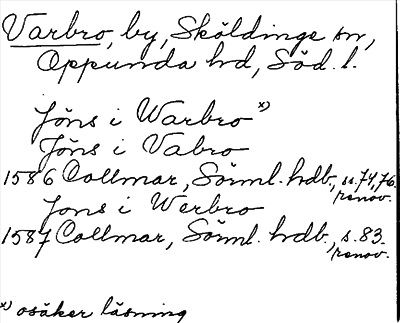 Varbro, by, Sköldinge sn,
Oppunda hd, Söd. l.
Jöns i Warbro x)
Jöns i Vabro
1586 Collmar, Sörml. hdb., ss. 74, 76.
renov.
Jons i Werbro
1587 Collmar, Sörml. hdb., s. 83.
renov.
x) osäker läsning